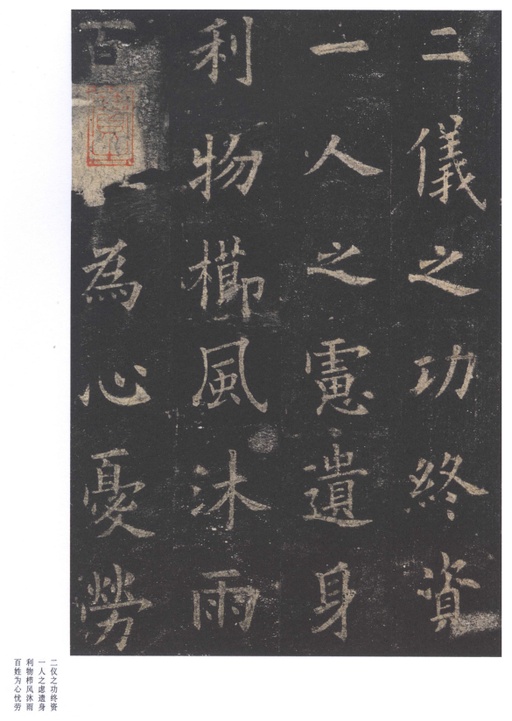 二儀之功終資
一人之慮遺身
利物櫛風沐雨
百
為心憂勞
二仪之功终资
一人之虑遗身
利物栉风沐雨
百姓为心忧劳